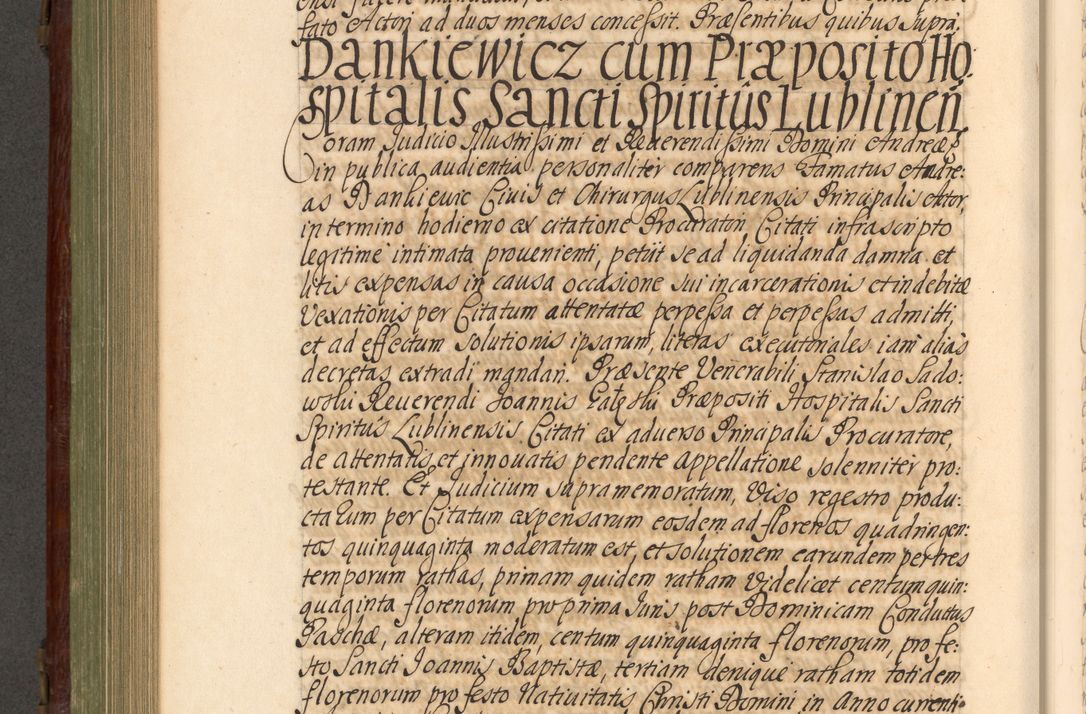 fato Actori ad duos menses concessit. Præsentibus quibus supra.
Dankiewicz cum Præposito Ho:
spitalis Sancti Spiritûs Lublinen̄
Coram Judicio Illustrissimi et Reuerendissimi Domini Andreæ
in publica audientia personaliter comparens Famatus Andre:
as Dankiewic Ciuis et Chirurgus Lublinensis Principalis Actor,
in termino hodierno ex citatione Procuratori Citati infrascripto
legitime intimata prouenienti, petiit se ad liquidanda damna et
litis expensas in causa occasione sui incarcerationis et indebitæ
Vexationis per Citatum attentatæ perpessa et perpessas admitti,
et ad effectum solutionis ipsarum, literas executoriales iam alias
decretas extradi mandari. Præsente Venerabili Stanislao Sado:
wski Reuerendi Joannis Præpositi Hospitalis Sancti
Spiritûs Lublinensis Citati ex aduerso Principalis Procuratore,
de attentatis et innouatis pendente Appellatione solenniter pro:
testante. Et Judicium supramemoratum, Viso regestro produ:
ctarum per Citatum expensarum eosdem ad florenos quadringen:
tos quinquaginta moderatum est, et solutionem earundem per tres
temporum rathas, primam quidem ratham videlicet centum quin:
quaginta florenorum pro prima Juris post Dominicam Conductus
Paschæ, alteram itidem, centum quinquaginta florenorum, pro fe:
sto Sancti Joannis Baptistæ, tertiam denique ratham totidem
florenorum pro festo Natiuitatis Christi Domini in Anno currenti